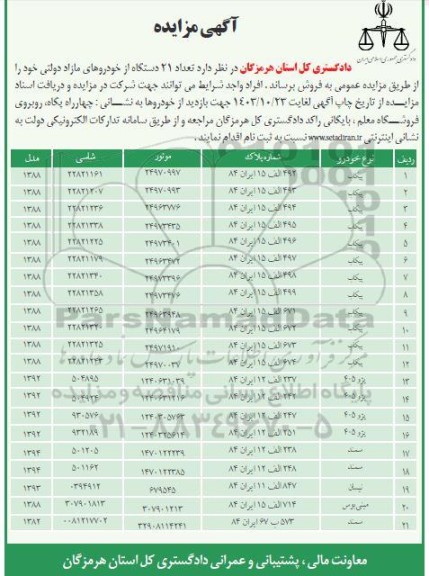 آگهی مزایده
دادگستری جمهوری اسلامی ایران
دادگستری کل استان هرمزگان در نظر دارد تعداد ۲۱ دستگاه از خودروهای مازاد دولتی خود را
از طریق مزایده عمومی به فروش برساند . افراد واجد شرایط می توانند جهت شرکت در مزایده و دریافت اسناد
مزایده از تاریخ چاپ آگهی لغایت ۱۴۰۳/۱۰/۲۳ جهت بازدید از خودروها به نشانی : چهارراه پگاه، روبروی
فروشگاه معلم ، بایگانی راکد دادگستری کل هرمزگان مراجعه و از طریق سامانه تدارکات الکترونیکی دولت به
نشانی اینترنتی www.setadiran.ir نسبت به ثبت نام اقدام نمایند .
ردیف نوع خودرو شماره پلاک موتور شاسی مدل
۱ پیکاپ ۴۹۲ الف ۱۵ ایران ۸۴ ۲۴۹۷۰۹۹۷ ۲۲۸۲۱۱۶۱ ۱۳۸۸
۲ پیکاپ ۴۹۳ الف ۱۵ ایران ۸۴ ۲۴۹۷۰۹۹۳ ۲۲۸۲۱۲۰۷ ۱۳۸۸
۳ پیکاپ ۴۹۴ الف ۱۵ ایران ۸۴ ۲۴۹۶۳۷۷۶ ۲۲۸۲۱۲۳۶ ۱۳۸۸
۴ پیکاپ ۴۹۵ الف ۱۵ ایران ۸۴ ۲۲۸۲۱۳۳۸ ۱۳۸۸
۵ پیکاپ ۴۹۶ الف ۱۵ ایران ۸۴ ۲۴۹۷۳۴۰۱ ۲۲۸۲۱۲۲۵ ۱۳۸۸
۶ پیکاپ ۴۹۷ الف ۱۵ ایران ۸۴ ۲۲۸۲۱۱۷۹ ۱۳۸۸
۷ پیکاپ ۴۹۸ الف ۱۵ ایران ۸۴ ۲۴۹۷۳۳۹۶ ۲۲۸۲۱۳۴۰ ۱۳۸۸
۸ پیکاپ ۴۹۹ الف ۱۵ ایران ۸۴ ۲۲۸۲۱۳۵۸ ۱۳۸۸
۹ پیکاپ ۶۷۱ الف ۱۵ ایران ۸۴ ۲۴۹۶۳۹۴۸ ۲۲۸۲۱۲۶۵ ۱۳۸۸
۱۰ پیکاپ ۶۷۲ الف ۱۵ ایران ۸۴ ۲۴۹۶۴۱۷۹ ۱۳۸۸
۱۱ پیکاپ ۶۷۳ الف ۱۵ ایران ۸۴ ۲۴۹۷۱۹۱۰ ۲۲۸۲۱۳۲۵ ۱۳۸۸
۱۲ پیکاپ ۶۷۴ الف ۱۵ ایران ۸۴ ۲۴۹۷۰۰۳۷ ۱۳۸۸
۱۳ پژو ۴۰۵ ۲۳۷ الف ۱۲ ایران ۸۴ ۵۰۴۸۹۵ ۱۳۹۲
۱۴ پژو ۴۰۵ ۲۴۲ الف ۱۲ ایران ۸۴ ۱۳۹۲
۱۵ پژو ۴۰۵ ۲۴۷ الف ۱۲ ایران ۸۴ ۹۳۰۵۷۶ ۱۳۹۲
۱۶ پژو ۴۰۵ ۲۵۱ الف ۱۲ ایران ۸۴ ۹۳۲۱۸۹ ۱۳۹۲
۱۷ سمند ۲۳۸ الف ۱۲ ایران ۸۴ ۱۴۷۰۱۲۲۲۳۹ ۵۰۱۲۰۵ ۱۳۹۴
۱۸ سمند ۲۴۸ الف ۱۲ ایران ۸۴ ۱۴۷۰۱۲۲۳۸۵ ۵۰۱۱۶۲ ۱۳۹۴
۱۹ نیسان ۸۴۷ الف ۱۱ ایران ۸۴ ۶۷۹۵۴۵ ۰۳۹۴۹۱۲ ۱۳۹۳
۲۰ مینی بوس ۷۱۴ الف ۱۵ ایران ۸۴ ۳۰۷۹۰۱۲۱۳ ۳۰۷۹۰۱۸۱۳ ۱۳۸۸
۲۱ سمند ۵۷۳ ب ۶۷ ایران ۸۴ ۳۲۹۰۸۱۱۴۲۴۱ ۰۰۸۱۲۱۷۷۰۲ ۱۳۸۲
ParsNamadData
پایگاه اطلاع رسانی مناقصه و مزایده
۰۲۱-۸۸۳۴۹۶۷۰-۵
معاونت مالی ، پشتیبانی و عمرانی دادگستری کل استان هرمزگان